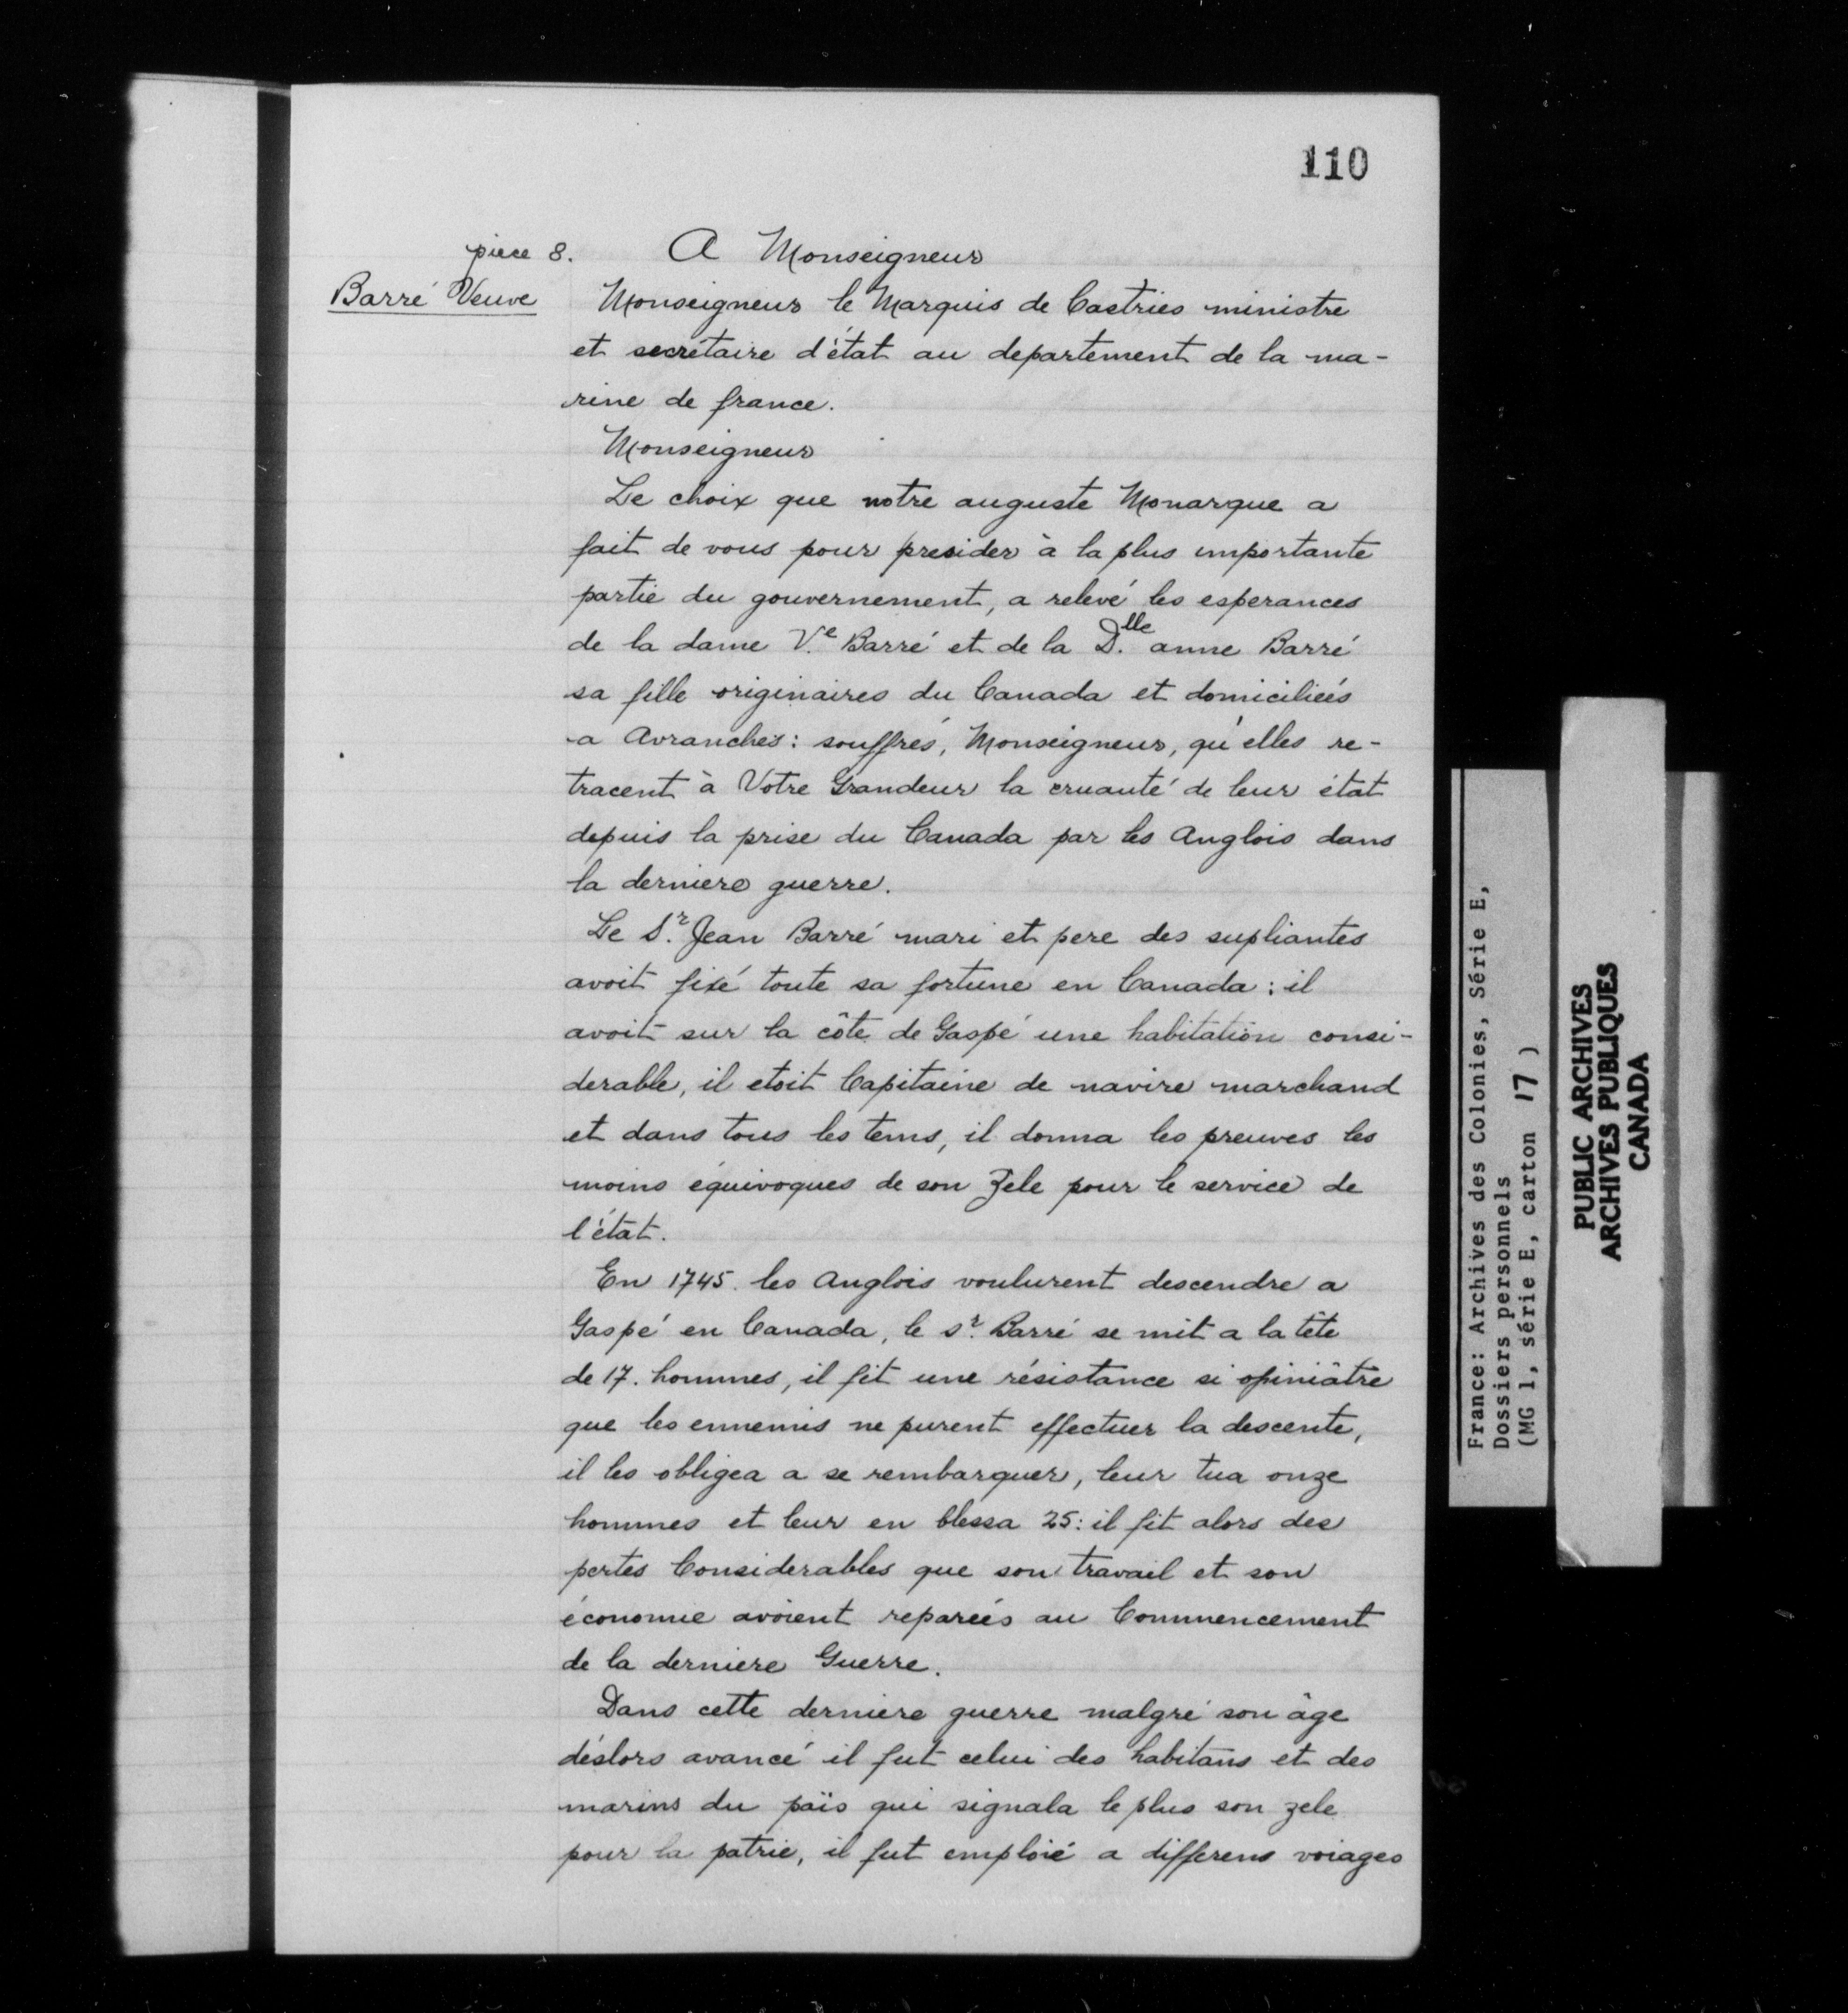 110
piece 8.
A Monseigneur
Barré Veuve
Monseigneur le Marquis de Castries ministre
et secrétaire d'état au departement de la ma-
rine de france.
Monseigneur
Le choix que notre auguste Monarque a
fait de vous pour presider à la plus importante
partie du gouvernement, a relevé les esperances
de la dame Ve. Barré et de la Dlle. anne Barré
sa fille originaires du Canada et domiciliées
a Avranches: souffrés, Monseigneur, qu'elles re-
tracent à Votre Grandeur la cruauté de leur état
depuis la prise du Canada par les Anglois dans
la derniere guerre.
Le Sr. Jean Barré mari et pere des supliantes
avoit fixé toute sa fortune en Canada: il
avoit sur la côte de Gaspé une habitation consi-
derable, il etoit Capitaine de navire marchand
et dans tous les tems, il donna les preuves les
moins équivoques de son Zele pour le service de
l'état.
En 1745. les Anglois voulurent descendre a
Gaspé en Canada, le sr. Barré se mit a la tête
de 17. hommes, il fit une résistance si opiniâtre
que les ennemis ne purent effectuer la descente,
il les obligea a se rembarquer, leur tua onze
hommes et leur en blessa 25: il fit alors des
pertes Considerables que son travail et son
économie avoient reparées au Commencement
de la derniere Guerre.
Dans cette derniere guerre malgré son âge
déslors avancé il fut celui des habitans et des
marins du païs qui signala le plus son zele
pour la patrie, il fut emploié a differens voiages
France: Archives des Colonies, Série E,
Dossiers personnels
(MG 1, série E, carton 17)
PUBLIC ARCHIVES
ARCHIVES PUBLIQUES
CANADA